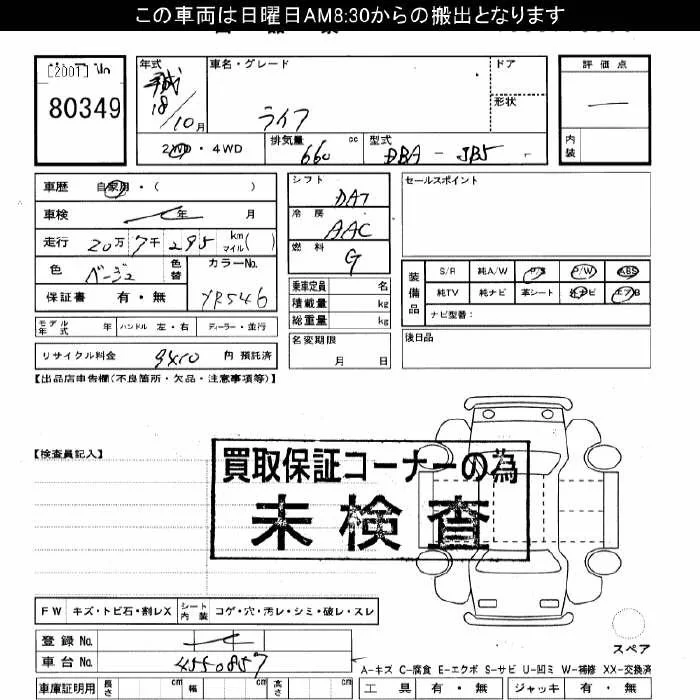 この車両は日曜日AM8:30からの搬出となります
80349
年式 平成 18/10月
車名・グレード
ライフ
ドア
形状
評価点
―
内装
2WD・4WD
排気量 660 cc
型式 DBA-JB5
車歴 自家用・( )
車検 年 月
走行 20万7千295 km マイル( )
色 ベージュ 色替
カラーNo. YR546
保証書 有・無
シフト DAT
冷房 AAC
燃料 G
乗車定員 名
積載量 kg
総重量 kg
名変期限 月 日
セールスポイント
装備品
S/R 純A/W P/S P/W ABS
純TV 純ナビ 革シート 社ナビ エアB
ナビ型番:
後日品
モデル年式 年 ハンドル 左・右 ディーラー・並行
リサイクル料金 円 預託済
【出品店申告欄(不良箇所・欠品・注意事項等)】
【検査員記入】
買取保証コーナーの為
未検査
FW キズ・トビ石・割レX シート内装 コゲ・穴・汚レ・シミ・破レ・スレ
登録No.
車台No. 4550857
スペア
A-キズ C-腐食 E-エクボ S-サビ U-凹ミ W-補修 XX-交換済
車庫証明用 長さ cm 幅 cm 高さ cm
工具 有・無 ジャッキ 有・無